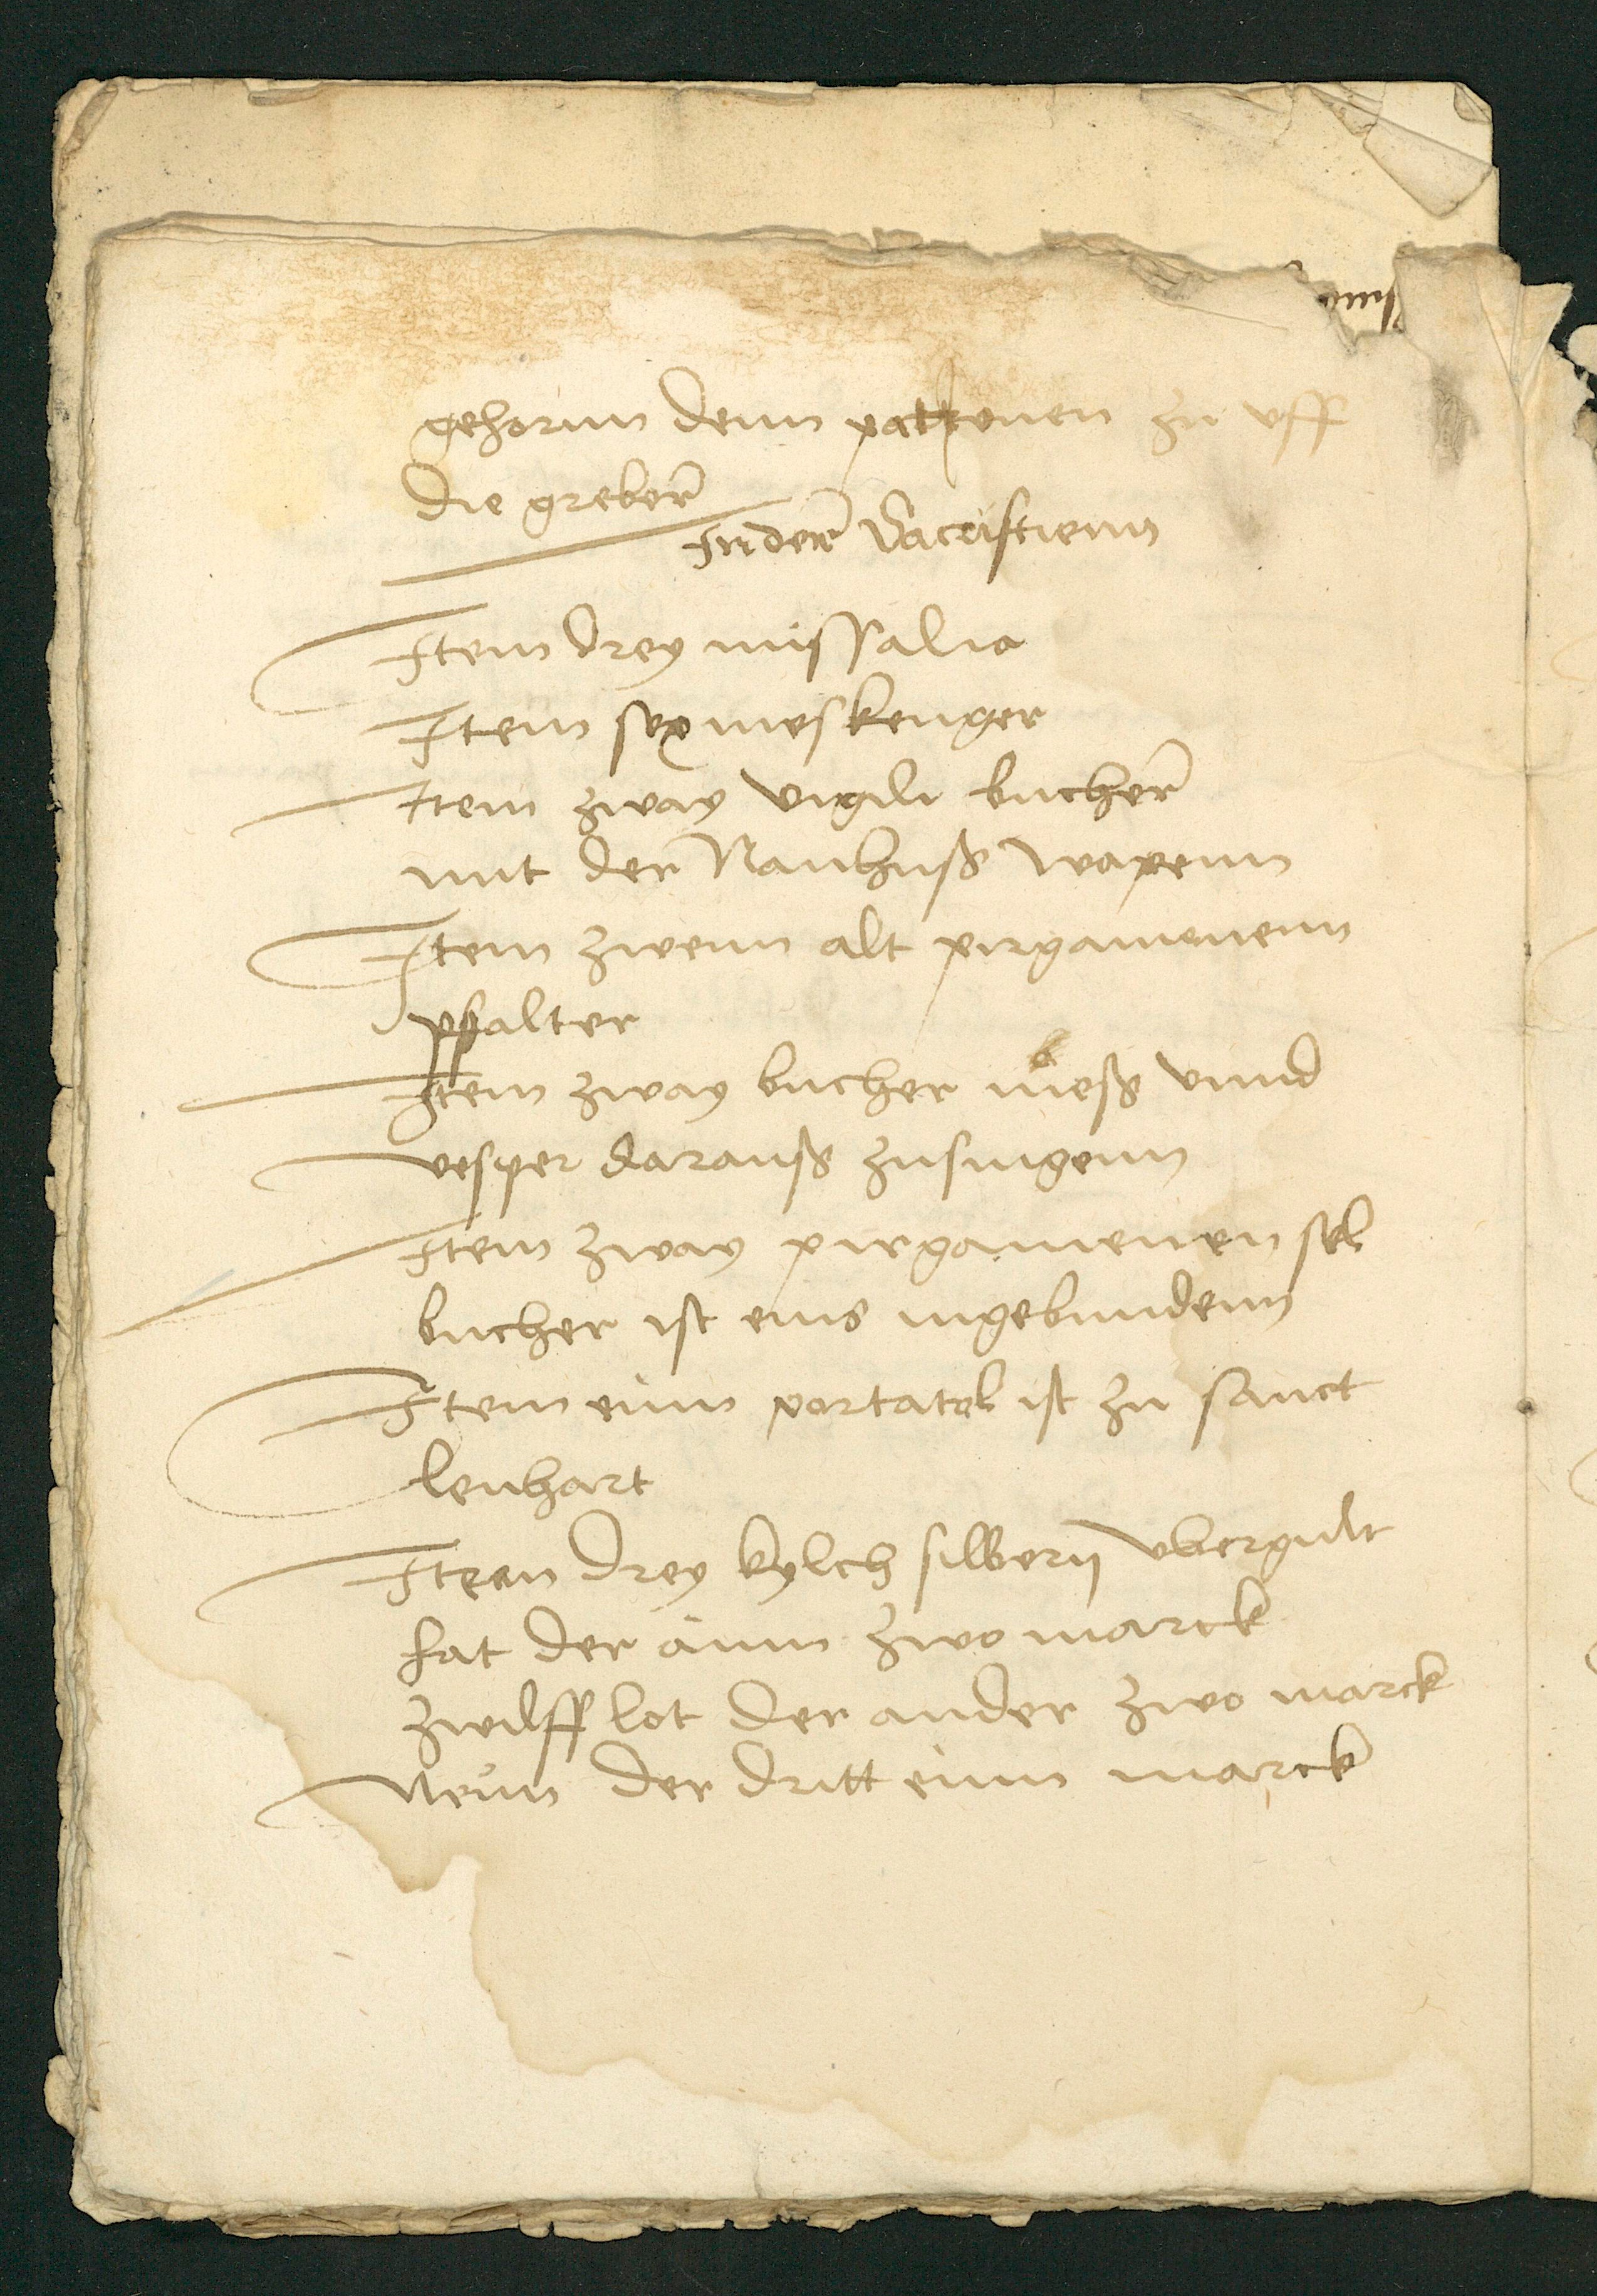 gehornn denn patronen zu vff
die greber
In der Sacristienn
Item drey missalia
Item sex meskenger
Item zway vigili bucher
mit der Nanhuß wapenn
Item zwenn alt pirgamenenn
psalter
Item zway bucher meß vnnd
vesper darauß zusingenn
Item zway pirgamenen sel
bucher ist eins ingebundenn
Item einn portatel ist zu sanct
lenhart
Item drey kylch silbery vbergult
hat der ainn zwo marck
zwilff lot der ander zwo marck
Neun der dritt einn marck